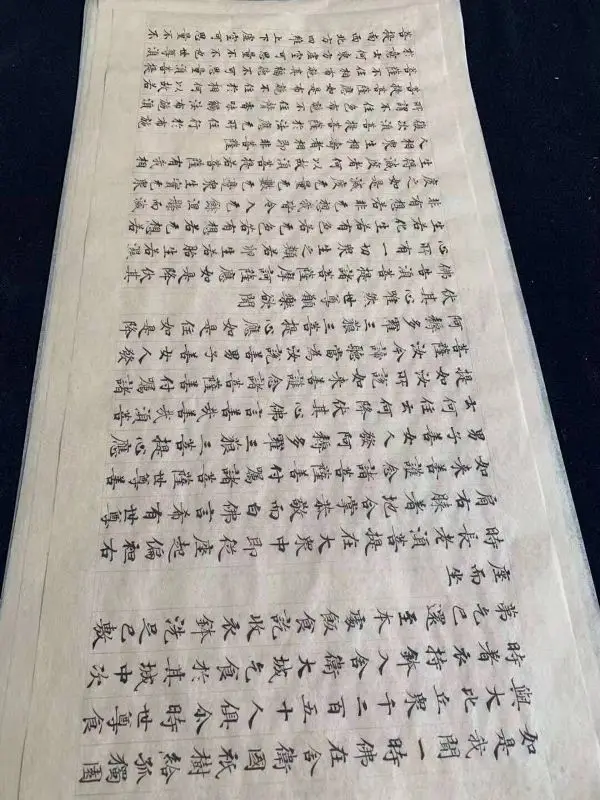 如是我聞一時佛在舍衛國祇樹給孤獨園
與大比丘眾千二百五十人俱尒時世尊食
時著衣持鉢入舍衛大城乞食於其城中次
第乞已還至本處飯食訖收衣鉢洗足已敷
座而坐
時長老須菩提在大眾中即從座起偏袒右
肩右膝著地合掌恭敬而白佛言希有世尊
如來善護念諸菩薩善付囑諸菩薩世尊善
男子善女人發阿耨多羅三藐三菩提心應
云何住云何降伏其心佛言善哉善哉須菩
提如汝所說如來善護念諸菩薩善付囑諸
菩薩汝今諦聽當為汝說善男子善女人發
阿耨多羅三藐三菩提心應如是住如是降
伏其心唯然世尊願樂欲聞
佛告須菩提諸菩薩摩訶薩應如是降伏其
心所有一切眾生之類若卵生若胎生若濕
生若化生若有色若无色若有想若无想若
非有想非无想我皆令入无餘涅槃而滅
度之如是滅度无量无數无邊眾生實无眾
生得滅度者何以故須菩提若菩薩有我相
人相眾生相壽者相即非菩薩
復次須菩提菩薩於法應无所住行於布施
所謂不住色布施不住聲香味觸法布施須
菩提菩薩應如是布施不住於相何以故若
菩薩不住相布施其福德不可思量須菩提
於意云何東方虛空可思量不不也世尊須
菩提南西北方四維上下虛空可思量不不